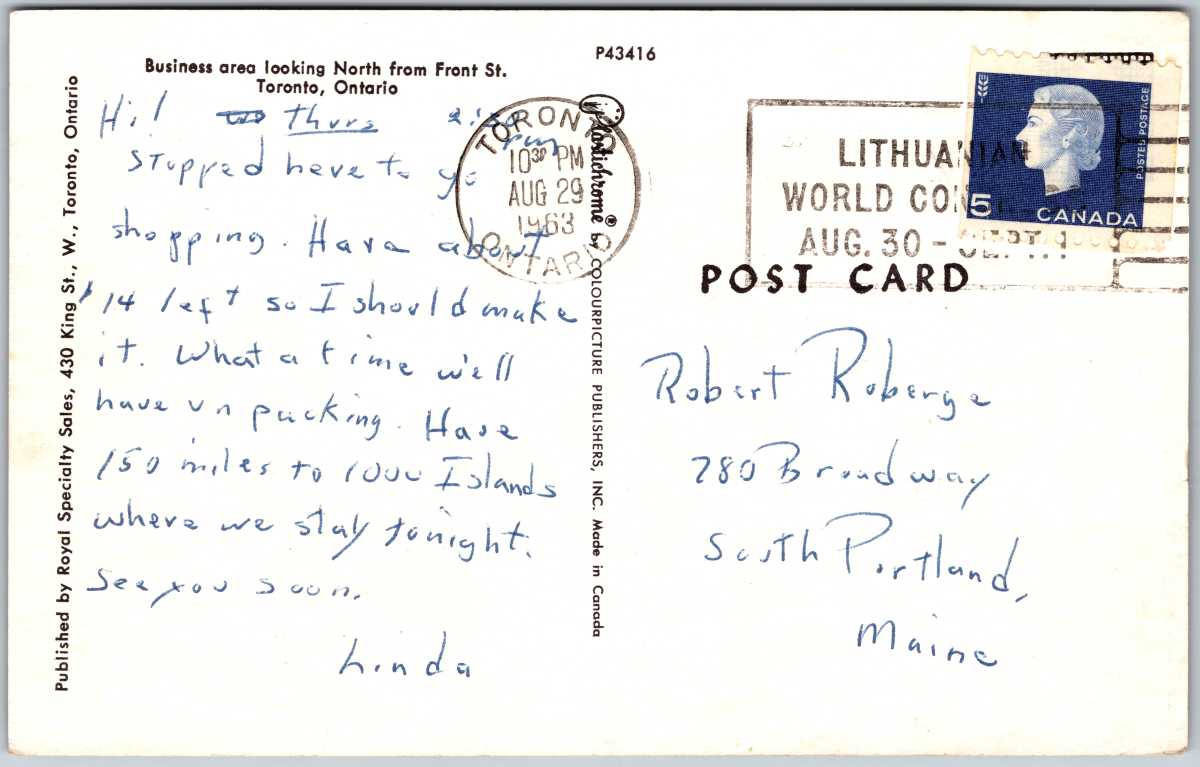 P43416
Business area looking North from Front St.
Toronto, Ontario
Hi! Thurs
Stopped here to go
shopping. Have about
$14 left so I should make
it. What a time we'll
have unpacking. Have
150 miles to 1000 Islands
where we stay tonight.
See you soon.
Linda
Published by Royal Specialty Sales, 430 King St., W., Toronto, Ontario
Plastichrome® by COLOURPICTURE PUBLISHERS, INC. Made in Canada
TORONTO
10 30 PM
AUG 29
1963
ONTARIO
LITHUANIAN
WORLD
AUG. 30 - SEPT. 1
5 CANADA
POSTES POSTAGE
POST CARD
Robert Roberge
780 Broadway
South Portland,
Maine